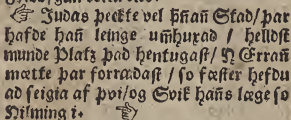 ☞ Judas peckte vel þñañ Stad / þar
hafde hañ leinge umhuxad / helldst
munde Platz þad hentugast / Ꞃ Erran̄
mætte þar forrædast / so fæster hefdu
ad seigia af þvi / og Svik hañs læge so
Dilming i. ☞